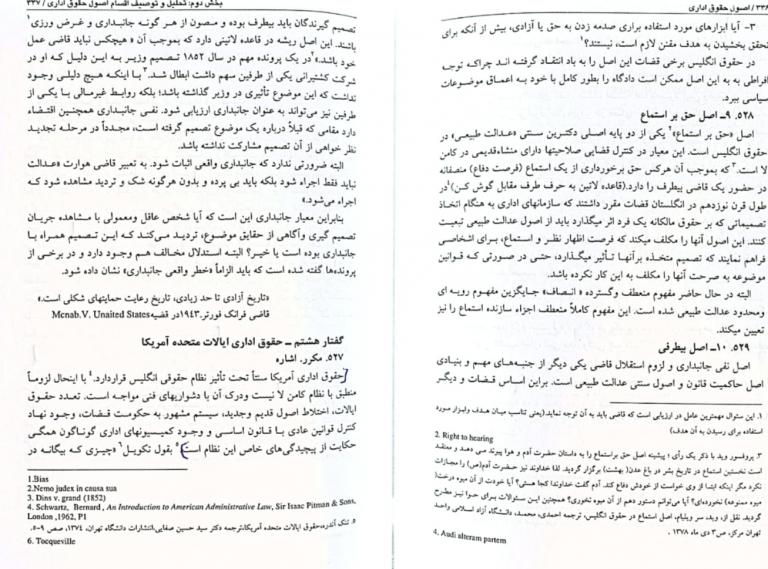 ۳۳۶ / اصول حقوق اداری
۳– آیا ابزارهای مورد استفاده براری صدمه زدن به حق یا آزادی، بیش از آنکه برای
تحقق بخشیدن به هدف مقنن لازم است، نیستند؟¹
در حقوق انگلیس برخی قضات این اصل را به باد انتقاد گرفته اند چراکه توجه
افراطی به به این اصل ممکن است دادگاه را بطور کامل با خود به اعماق موضوعات
سیاسی ببرد.
۵۲۸. ۹– اصل حق بر استماع
اصل «حق بر استماع»² یکی از دو پایه اصلی دکترین سنتی «عدالت طبیعی» در
حقوق انگلیس است. این معیار در کنترل قضایی صلاحیتها دارای منشاءقدیمی در کامن
لا است.³ که بموجب آن هرکس حق برخورداری از یک استماع (فرصت دفاع) منصفانه
در حضور یک قاضی بیطرف را دارد.(قاعده لاتین به حرف طرف مقابل گوش کن)⁴در
طول قرن نوزدهم در انگلستان قضات مقرر داشتند که سازمانهای اداری به هنگام اتخاذ
تصمیماتی که بر حقوق مالکانه یک فرد اثر میگذارد باید از اصول عدالت طبیعی تبعیت
کنند. این اصول آنها را مکلف میکند که فرصت اظهار نظر و استماع، برای اشخاصی
فراهم نمایند که تصمیم متخذه برآنها تأثیر میگذارد، حتی در صورتی که قوانین
موضوعه به صرحت آنها را مکلف به این کار نکرده باشد.
البته در حال حاضر مفهوم منعطف وگسترده « انصاف» جایگزین مفهوم رویه ای
ومحدود عدالت طبیعی شده است. این مفهوم کاملاً منعطف اجزاء سازنده استماع را نیز
تعیین میکند.
۵۲۹. ۱۰– اصل بیطرفی
اصل نفی جانبداری و لزوم استقلال قاضی یکی دیگر از جنبه‌های مهم و بنیادی
اصل حاکمیت قانون و اصول سنتی عدالت طبیعی است. براین اساس قضات و دیگر
۱. این سئوال مهمترین عامل در ارزیابی است که قاضی باید به آن توجه نماید(یعنی تناسب میان هدف وابزار مورد
استفاده برای رسیدن به آن هدف)
2. Right to hearing
۳. پروفسور وید با ذکر یک رأی ؛ پیشینه اصل حق براستماع را به داستان حضرت آدم و هوا پیوند می دهد و معتقد
است نخستین استماع در تاریخ بشر در باغ عدن (بهشت) برگزار گردید. لذا خداوند نیز حضرت آدم(ص) را مجازات
نکرد مگر اینکه ابتدا از وی خواست از خودش دفاع کند. آدم گفت خداوندا کجا هستی؟ آیا خودت از آن میوه درخت(
میوه ممنوعه) نخورده‌ای؟ آیا می‌توانم دستور دهم از آن میوه نخوری؟ همچنین این سئوالات برای حوا نیز مطرح
گردید. نقل از، وید، سر ویلیام، اصل استماع در حقوق انگلیس، ترجمه احمدی، محمد، دانشگاه آزاد اسلامی واحد
تهران مرکز، ص۳ دی ماه ۱۳۷۸.
4. Audi alteram partem
بخش دوم: تحلیل و توصیف اقسام اصول حقوق اداری / ۳۳۷
تصمیم گیرندگان باید بیطرف بوده و مصون از هر گونه جانبداری و غرض ورزی¹
باشند. این اصل ریشه در قاعده لاتینی دارد که بموجب آن « هیچکس نباید قاضی عمل
خود باشد.»²در یک پرونده مهم در سال ۱۸۵۲ تصمیم وزیر به این دلیل که او در
شرکت کشتیرانی یکی از طرفین سهم داشت ابطال شد.³ با اینکه هیچ دلیلی وجود
نداشت که این موضوع تأثیری در وزیر گذاشته باشد؛ بلکه روابط غیرمالی با یکی از
طرفین نیز می‌تواند به عنوان جانبداری ارزیابی شود. نفی جانبداری همچنین اقتضاء
دارد مقامی که قبلاً درباره یک موضوع تصمیم گرفته است، مجدداً در مرحله تجدید
نظر خواهی از آن تصمیم مشارکت نداشته باشد.
البته ضرورتی ندارد که جانبداری واقعی اثبات شود. به تعبیر قاضی هوارت «عدالت
نباید فقط اجراء شود بلکه باید بی پرده و بدون هرگونه شک و تردید مشاهده شود که
اجراء می‌شود.»
بنابراین معیار جانبداری این است که آیا شخص عاقل ومعمولی با مشاهده جریان
تصمیم گیری وآگاهی از حقایق موضوع، تردید می‌کند که این تصمیم همراه با
جانبداری بوده است یا خیر؟ البته استدلال مخالف هم وجود دارد و در برخی از
پرونده‌ها گفته شده است که باید الزاماً «خطر واقعی جانبداری» نشان داده شود.
«تاریخ آزادی تا حد زیادی، تاریخ رعایت حمایتهای شکلی است.»
قاضی فرانک فورتر،۱۹۴۳در قضیهMcnab.V. Unaited States
گفتار هشتم – حقوق اداری ایالات متحده آمریکا
۵۲۷. مکرر. اشاره
حقوق اداری آمریکا سنتاً تحت تأثیر نظام حقوقی انگلیس قراردارد.⁴ با اینحال لزوماً
منطبق با نظام کامن لا نیست ودرک آن با دشواریهای فنی مواجه است. تعدد حقوق
ایالات، اختلاط اصول قدیم وجدید، سیستم مشهور به حکومت قضات، وجود نهاد
کنترل قوانین عادی با قانون اساسی و وجود کمیسیونهای اداری گوناگون همگی
حکایت از پیچیدگی‌های خاص این نظام است⁵ بقول تکویل⁶ «چیزی که بیگانه در
1.Bias
2.Nemo judex in causa sua
3. Dins v. grand (1852)
4. Schwartz, Bernard , An Introduction to American Administrative Law, Sir Isaac Pitman & Sons,
London ,1962, P1
۵. تنک آندره،حقوق ایالات متحده آمریکا،ترجمه دکتر سید حسین صفایی،انتشارات دانشگاه تهران، ۱۳۷۴، صص ۹–۵.
6. Tocqueville